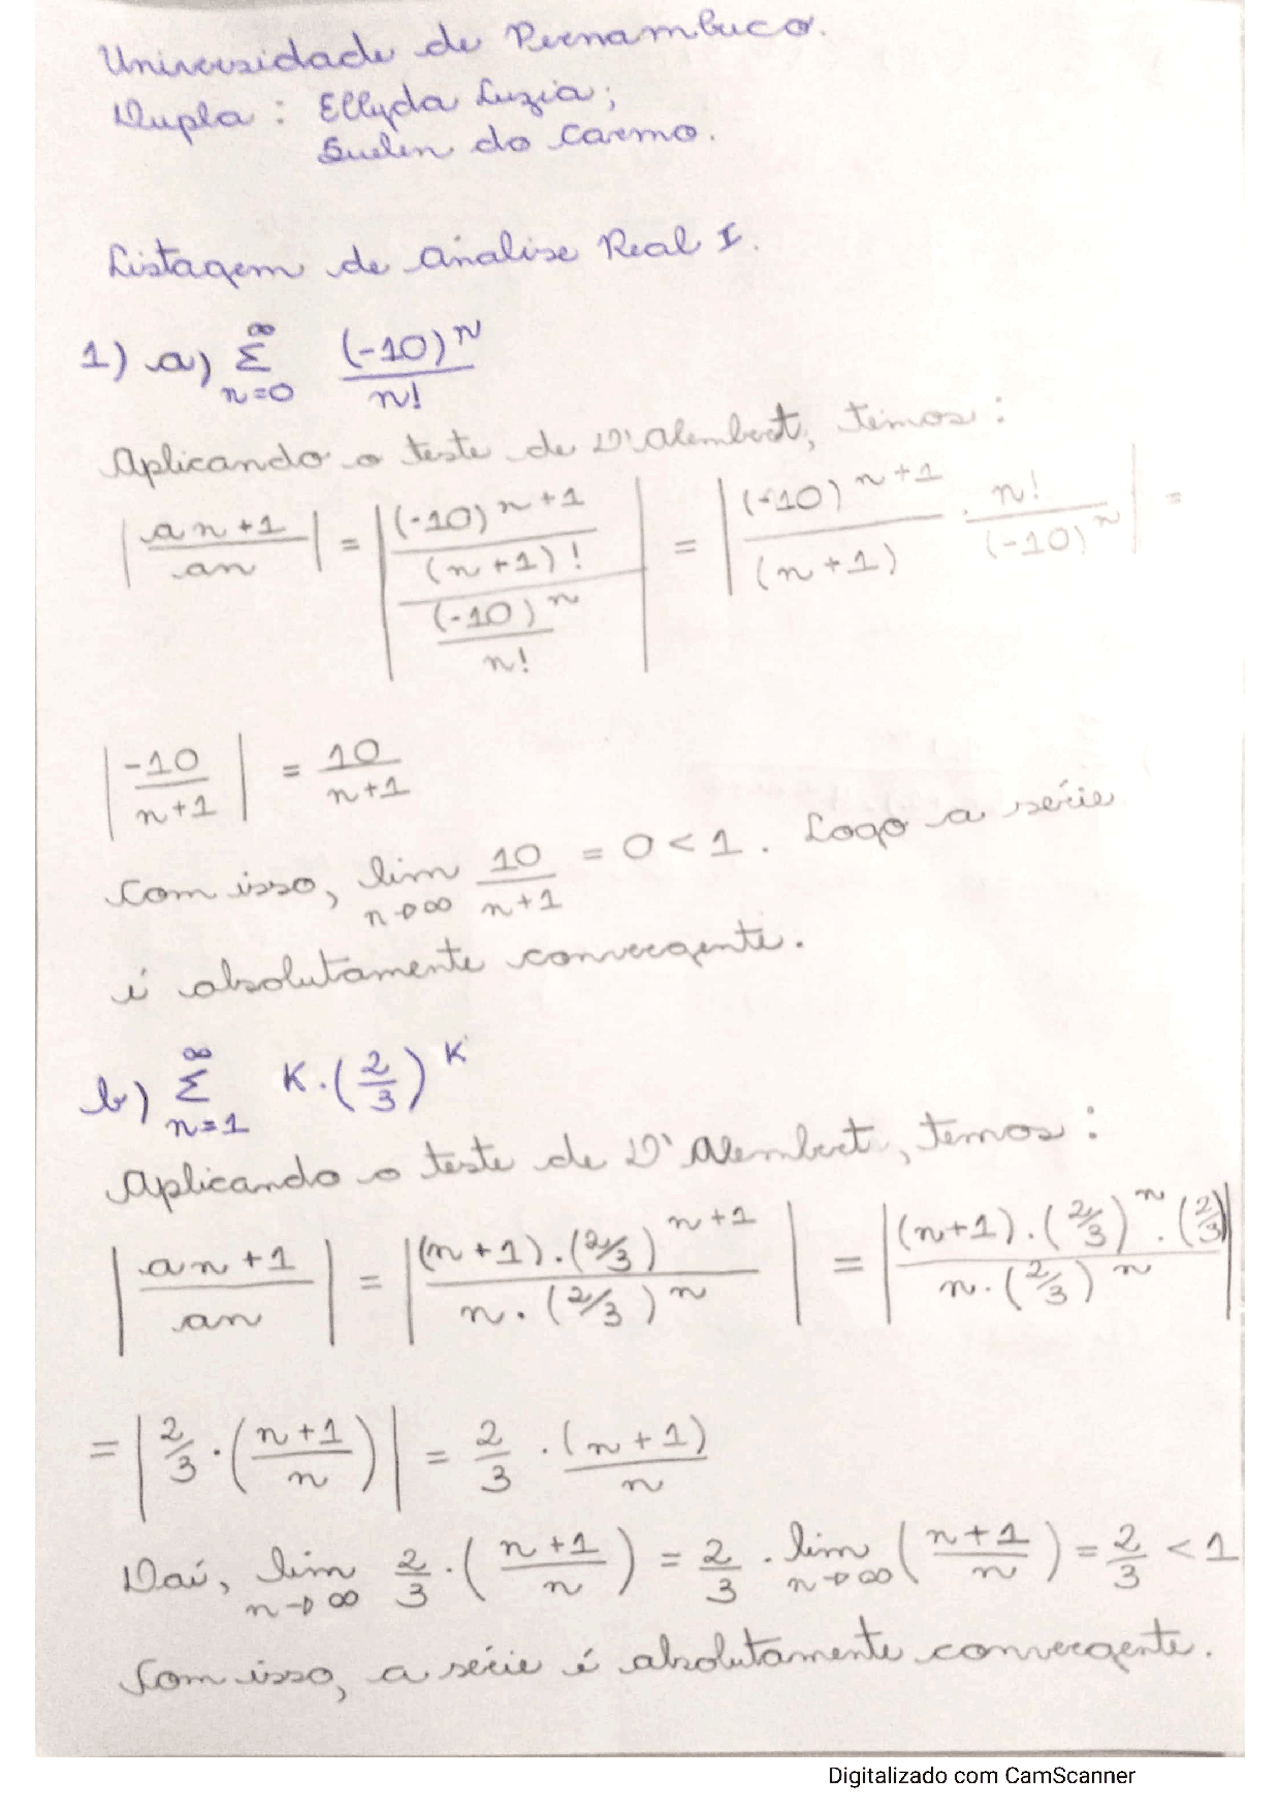 Universidade de Pernambuco.
Dupla: Ellyda Luzia;
Suelen do Carmo.
Listagem de Análise Real I.
1) a) ∑_{n=0}^{∞} (-10)^n / n!
Aplicando o teste de D'Alembert, temos:
| an+1 / an | = | ((-10)^{n+1} / (n+1)!) / ((-10)^n / n!) | = | (-10)^{n+1} / (n+1) · n! / (-10)^n | =
| -10 / n+1 | = 10 / n+1
Com isso, lim_{n→∞} 10 / n+1 = 0 < 1. Logo a série
é absolutamente convergente.
b) ∑_{n=1}^{∞} K·(2/3)^K
Aplicando o teste de D'Alembert, temos:
| an+1 / an | = | (n+1)·(2/3)^{n+1} / n·(2/3)^n | = | (n+1)·(2/3)^n·(2/3) / n·(2/3)^n |
= | 2/3·(n+1 / n) | = 2/3 · (n+1) / n
Daí, lim_{n→∞} 2/3·(n+1 / n) = 2/3 · lim_{n→∞} (n+1 / n) = 2/3 < 1
Com isso, a série é absolutamente convergente.
Digitalizado com CamScanner